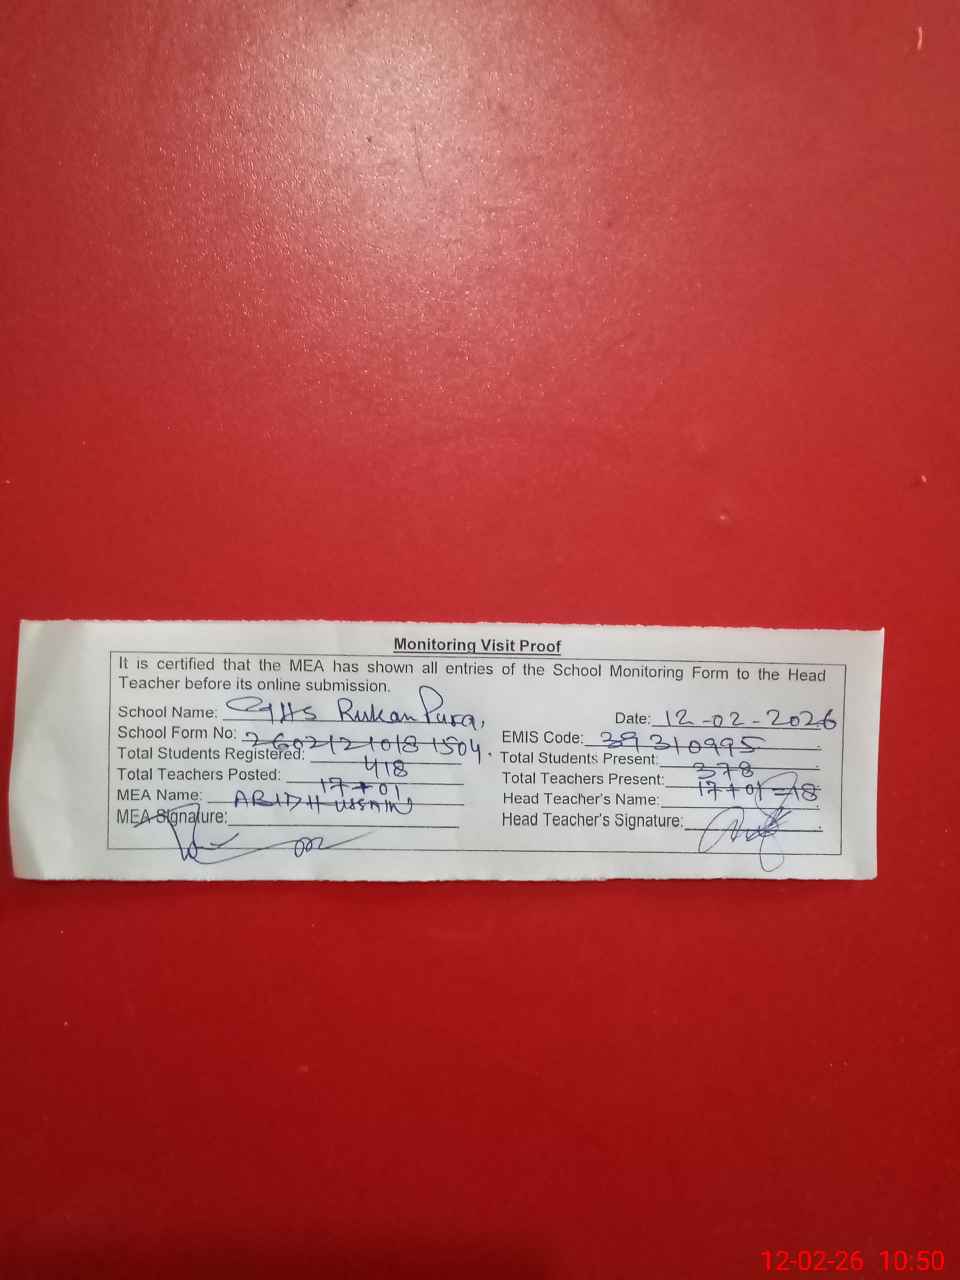 Monitoring Visit Proof
It is certified that the MEA has shown all entries of the School Monitoring Form to the Head
Teacher before its online submission.
School Name: GHS Rukan Pura,
Date: 12-02-2026
School Form No: 26021210181504.
EMIS Code: 39310995
Total Students Registered: 418
Total Students Present: 378
Total Teachers Posted: 17+01
Total Teachers Present: 17+01=18
MEA Name: ABID HUSSAIN
Head Teacher's Name:
MEA Signature:
Head Teacher's Signature:
12-02-26 10:50